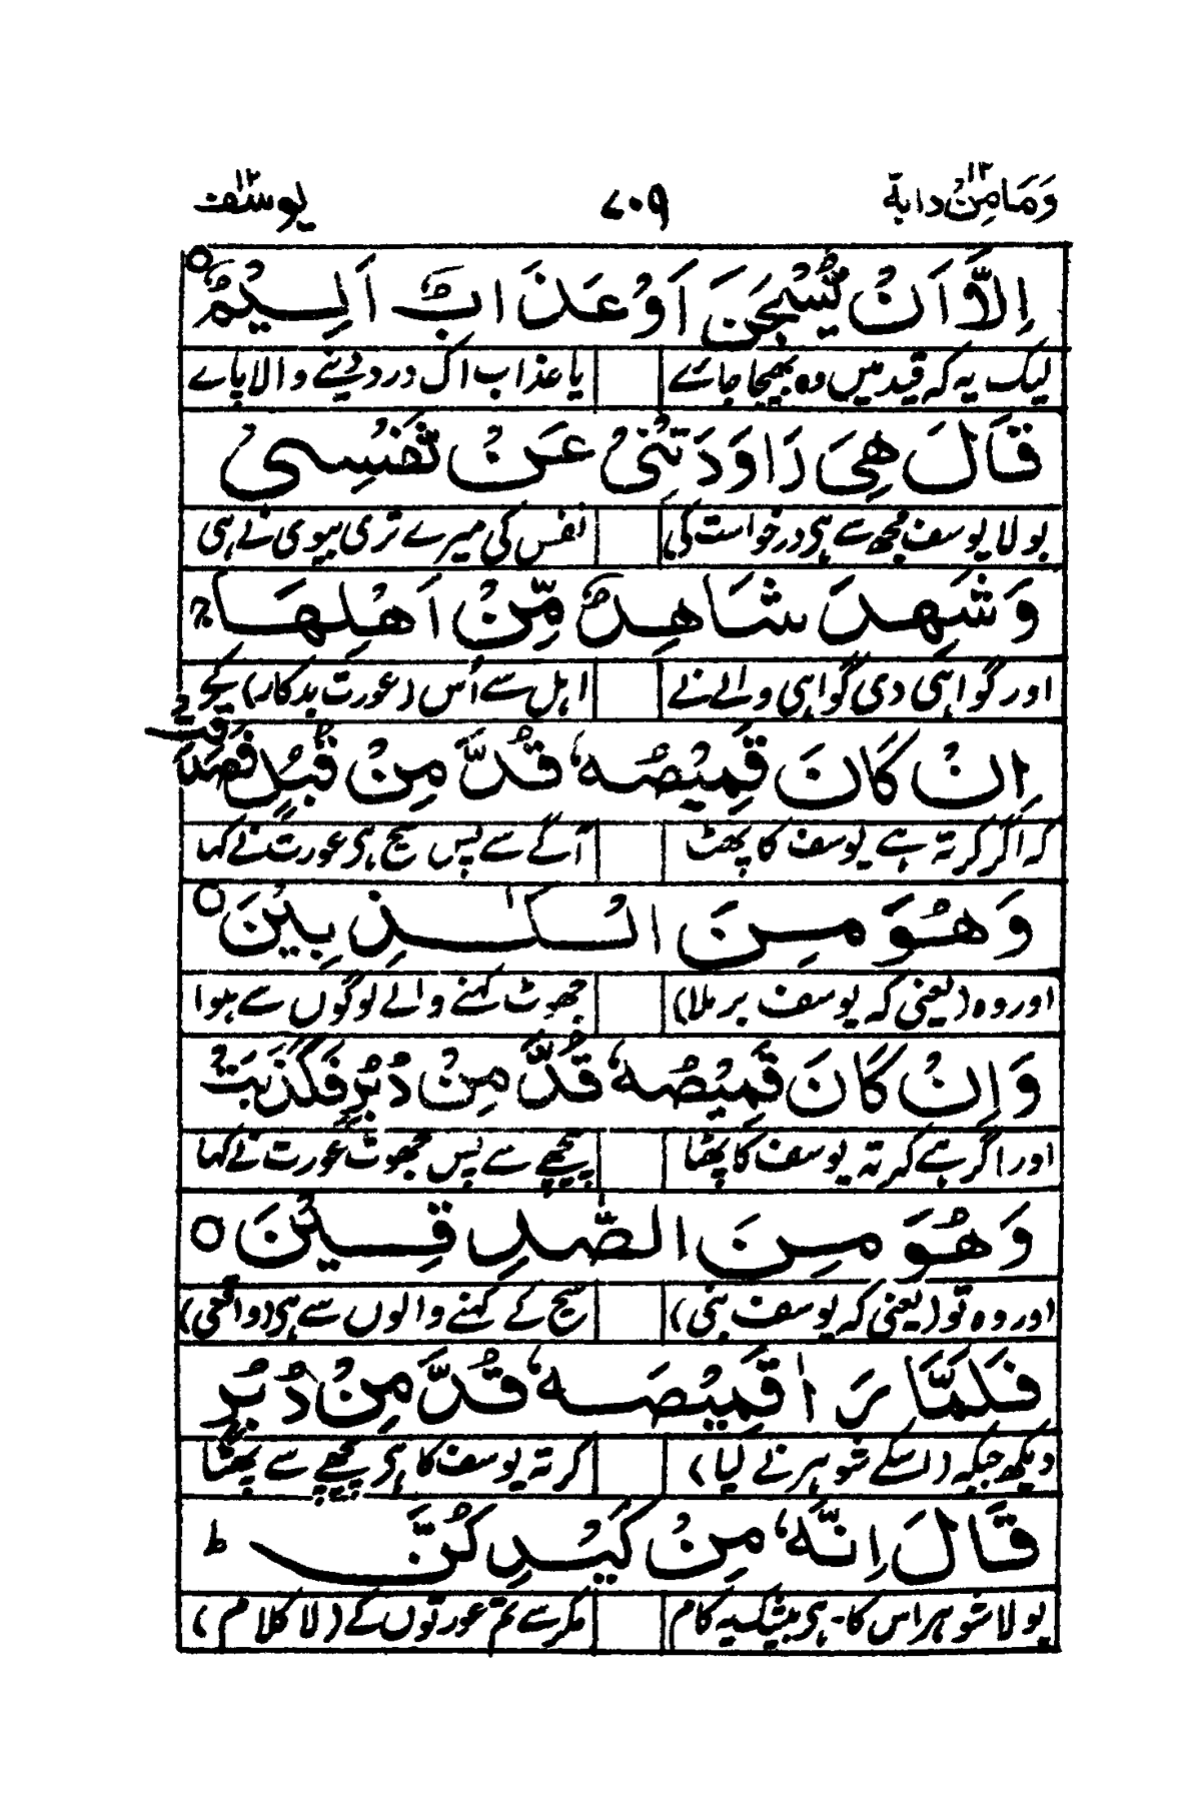 وَمَا مِنْ دابة ۱۲ ۷۰۹ یوسف ۱۲
اِلَّاۤ اَنْ يُّسْجَنَ اَوْ عَذَابٌ اَلِيْمٌ ○
لیک یہ کہ قید میں وہ بھیجا جائے یا عذاب اک درد دینے والا پائے
قَالَ هِيَ رَاوَدَتْنِيْ عَنْ نَّفْسِيْ
بولا یوسف مجھ سے ہی درخواست کی نفس کی میرے تری بیوی نے ہی
وَشَهِدَ شَاهِدٌ مِّنْ اَهْلِهَا ج
اور گواہی دی گواہی والے نے اہل سے اُس (عورت بدکار) کے
اِنْ كَانَ قَمِيْصُهٗ قُدَّ مِنْ قُبُلٍ فَصَدَقَتْ
کہ اگر کرتہ ہے یوسف کا پھٹ آگے سے پس سچ ہی عورت نے کہا
وَهُوَ مِنَ الْكٰذِبِيْنَ ○
اور وہ (یعنی کہ یوسف برملا) جھوٹ کہنے والے لوگوں سے ہوا
وَاِنْ كَانَ قَمِيْصُهٗ قُدَّ مِنْ دُبُرٍ فَكَذَبَتْ
اور اگر ہے کرتہ یوسف کا پھٹا پیچھے سے پس جھوٹ عورت نے کہا
وَهُوَ مِنَ الصّٰدِقِيْنَ ○
اور وہ تو (یعنی کہ یوسف نبی) سچ کے کہنے والوں سے ہی (واقعی)
فَلَمَّا رَاٰ قَمِيْصَهٗ قُدَّ مِنْ دُبُرٍ
دیکھ جبکہ (اسکے شوہر نے لیا) کرتہ یوسف کا ہی پیچھے سے پھٹا
قَالَ اِنَّهٗ مِنْ كَيْدِكُنَّ ط
بولا شوہر اس کا - ہی بیشک یہ کام مکر سے تم عورتوں کے (لا کلام)